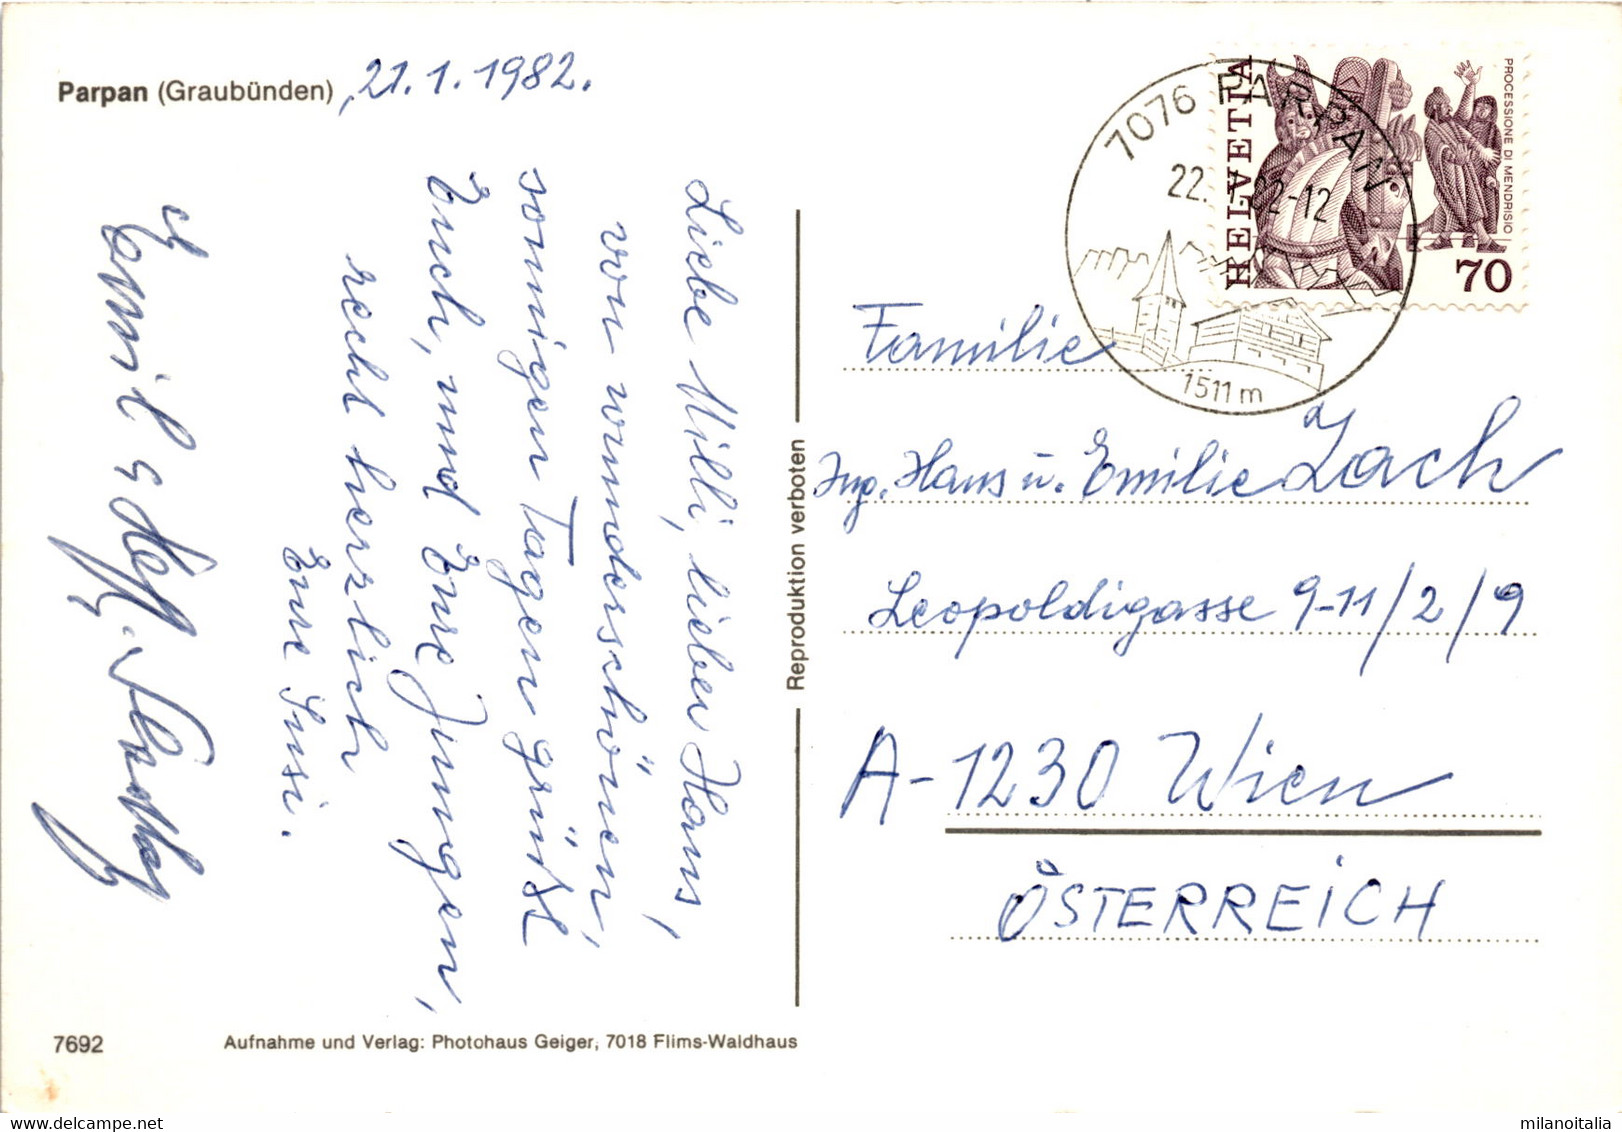 Parpan (Graubünden), 21.1.1982.
Liebe Milli, lieber Hans,
von wunderschönen,
sonnigen Tagen grüßt
Euch, und Eure Jungen,
recht herzlich
Eure Susi.
Emil
7692
Aufnahme und Verlag: Photohaus Geiger, 7018 Flims-Waldhaus
Reproduktion verboten
7076 PARPAN
22. 82-12
1511 m
HELVETIA
PROCESSIONE DI MENDRISIO
70
Familie
Ing. Hans u. Emilie Zach
Leopoldigasse 9-11/2/9
A-1230 Wien
ÖSTERREICH
milanoitalia
delcampe.net